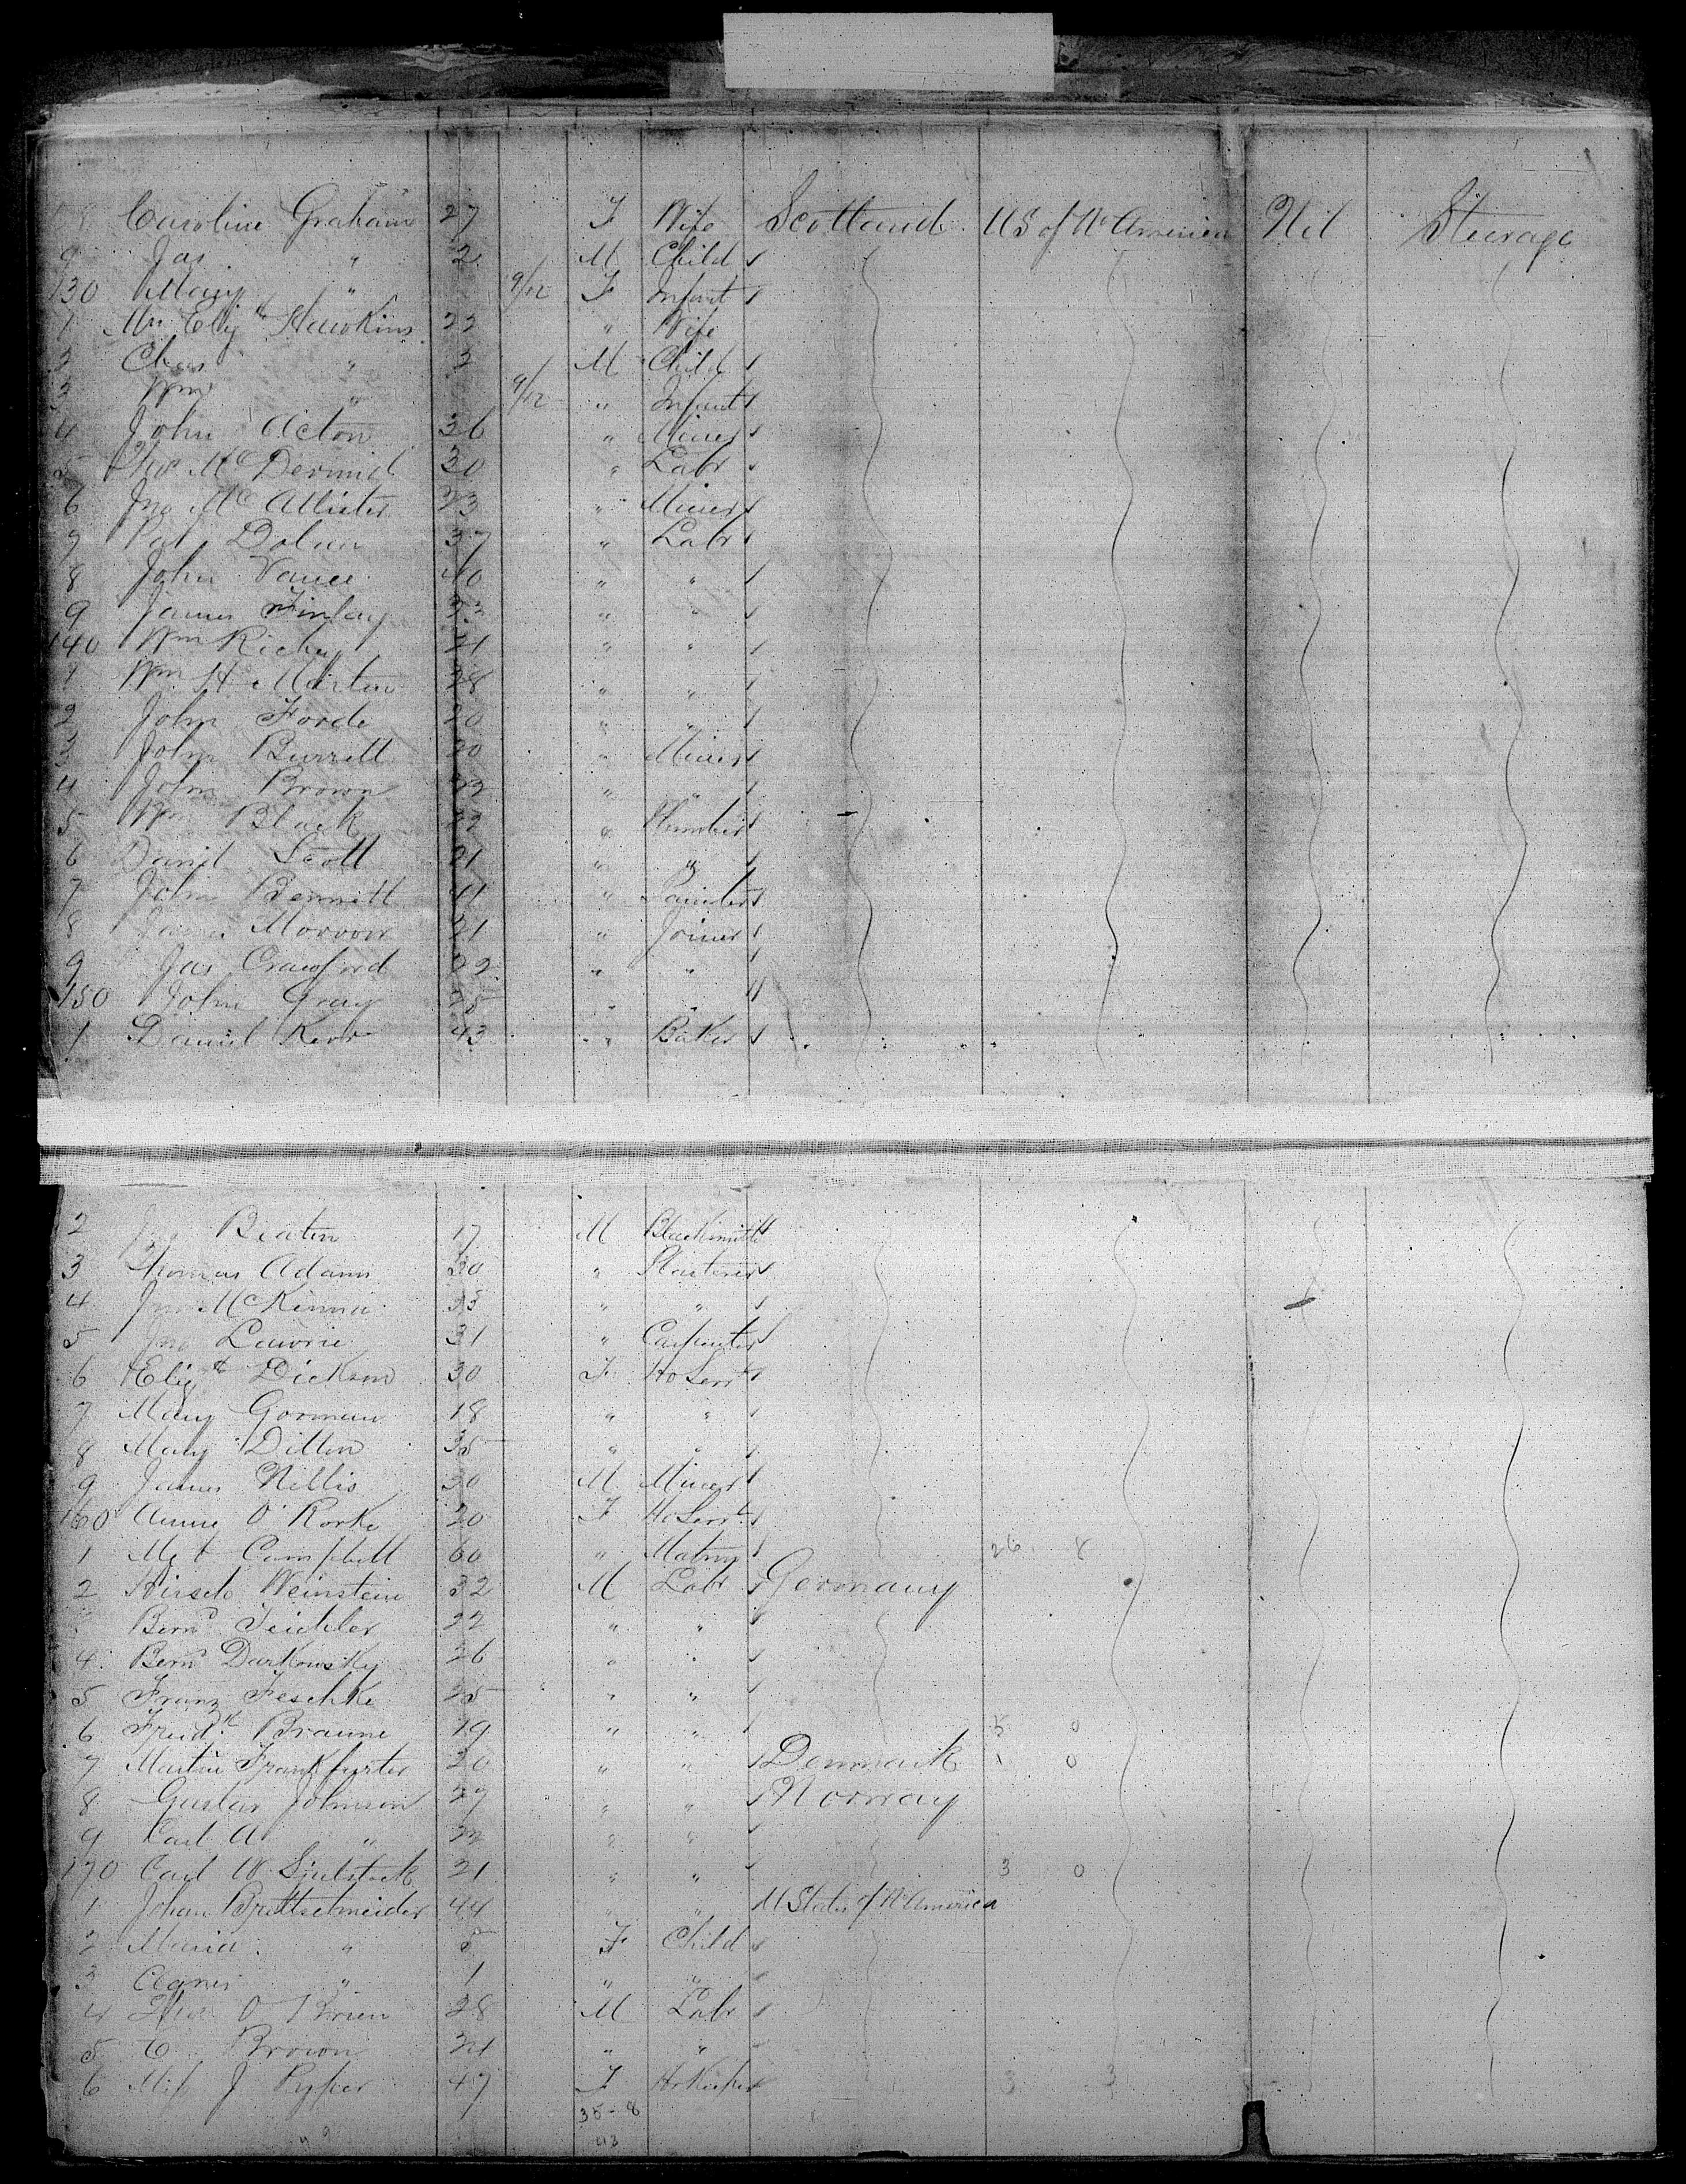 8 Caroline Graham 27 F Wife Scotland US of No America Nil Steerage
9 Jas " 2 M Child
130 Mary " 9/12 F Infant
1 Mrs Eliz th Hawkins 22 " Wife
2 Chas " 2 M Child
3 Wm " 9/12 " Infant
4 John Acton 36 " Miner
5 Thos McDermid 30 " Labr
6 Jno McAllister 23 " Miner
7 Pat Dolan 37 " Labr
8 John Vance 40 " "
9 James Finlay " "
140 Wm Richey 21 " "
1 Wm H Martin 28 " "
2 John Forde 20 " "
3 John Burrell 20 " Miner
4 John Brown 22 " "
5 Wm Black 22 " Plumber
6 David Scott 21 " "
7 John Bennett " Painter
8 James Morrow 21 " Joiner
9 Jas Crawford 22 " "
150 John Gray " "
1 Daniel Kerr 43 " Baker
2 Jno Beaton 17 M Blacksmith
3 Thomas Adams 30 " Plasterer
4 Jno McKinna 23 " "
5 Jno Lawrie 31 " Carpenter
6 Eliz th Dickson 30 F Ho Servt
7 Mary Gorman 18 " "
8 Mary Dillon 35 " "
9 James Nellis 30 M Miner
160 Annie O'Rorke 20 F Ho Servt
1 Mgt Campbell 60 " Matron 26 8
2 Hirsch Weinstein 32 M Labr Germany
Bernd Teichler 22 " "
4 Bernd Darkowsky 26 " "
5 Franz Feschke 25 " "
6 Fredk Braune 19 " " 5 0
7 Martin Frankfurter 20 " " Denmark 1 0
8 Gustav Johnson 27 " " Norway
9 Carl A " 22 " "
170 Carl W. 21 " " 3 0
1 Johan Brettschneider 44 " " U States of No America
2 Maria " 5 F Child
3 Agnes " 1 " "
4 Thos O'Brien 28 M Labr
5 C Brown 21 " "
6 Miss J Pyper 47 F Ho Keeper 3 3
35 - 8
43